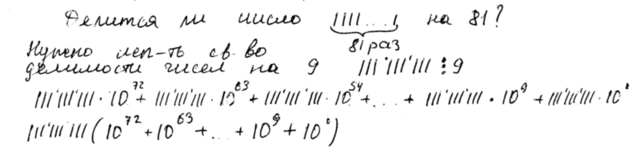 Делится ли число 1111...1 на 81?
81 раз
Нужно исп-ть св-во
делимости чисел на 9 111111111 ⋮ 9
111111111 · 10^72 + 111111111 · 10^63 + 111111111 · 10^54 + ... + 111111111 · 10^9 + 111111111 · 10^0
111111111 (10^72 + 10^63 + ... + 10^9 + 10^0)